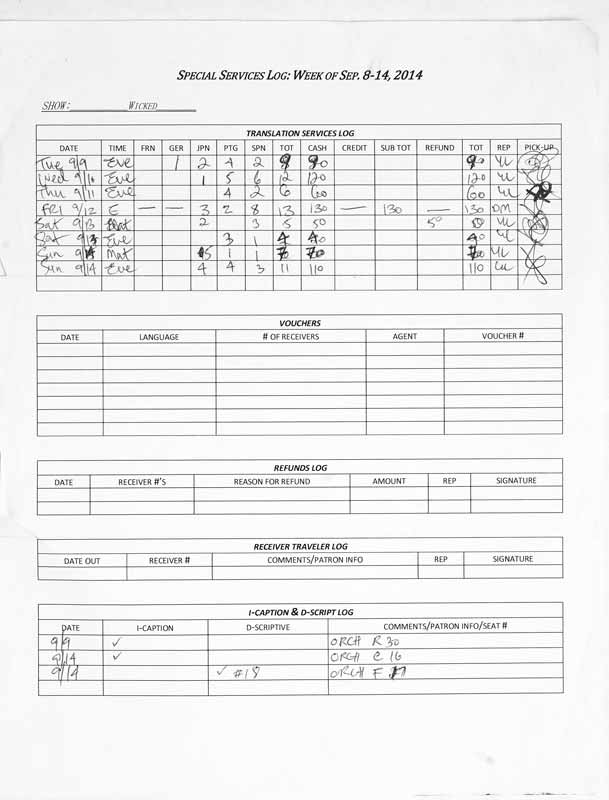 SPECIAL SERVICES LOG: WEEK OF SEP. 8-14, 2014
SHOW: WICKED
TRANSLATION SERVICES LOG
DATE TIME FRN GER JPN PTG SPN TOT CASH CREDIT SUB TOT REFUND TOT REP PICK-UP
Tue 9/9 Eve 1 2 4 2 9 90 90 YL
Wed 9/10 Eve 1 5 6 12 120 120 YL
Thu 9/11 Eve 4 2 6 60 60 YL
FRI 9/12 E — — 3 2 8 13 130 — 130 — 130 DM
Sat 9/13 Mat 2 3 5 50 50 YL
Sat 9/13 Eve 3 1 4 40 40 YL
Sun 9/14 Mat 5 1 1 7 70 70 YL
Sun 9/14 Eve 4 4 3 11 110 110
VOUCHERS
DATE LANGUAGE # OF RECEIVERS AGENT VOUCHER #
REFUNDS LOG
DATE RECEIVER #'S REASON FOR REFUND AMOUNT REP SIGNATURE
RECEIVER TRAVELER LOG
DATE OUT RECEIVER # COMMENTS/PATRON INFO REP SIGNATURE
I-CAPTION & D-SCRIPT LOG
DATE I-CAPTION D-SCRIPTIVE COMMENTS/PATRON INFO/SEAT #
9/9 ✓ ORCH R 30
9/14 ✓ ORCH C 16
9/14 ✓ #18 ORCH F